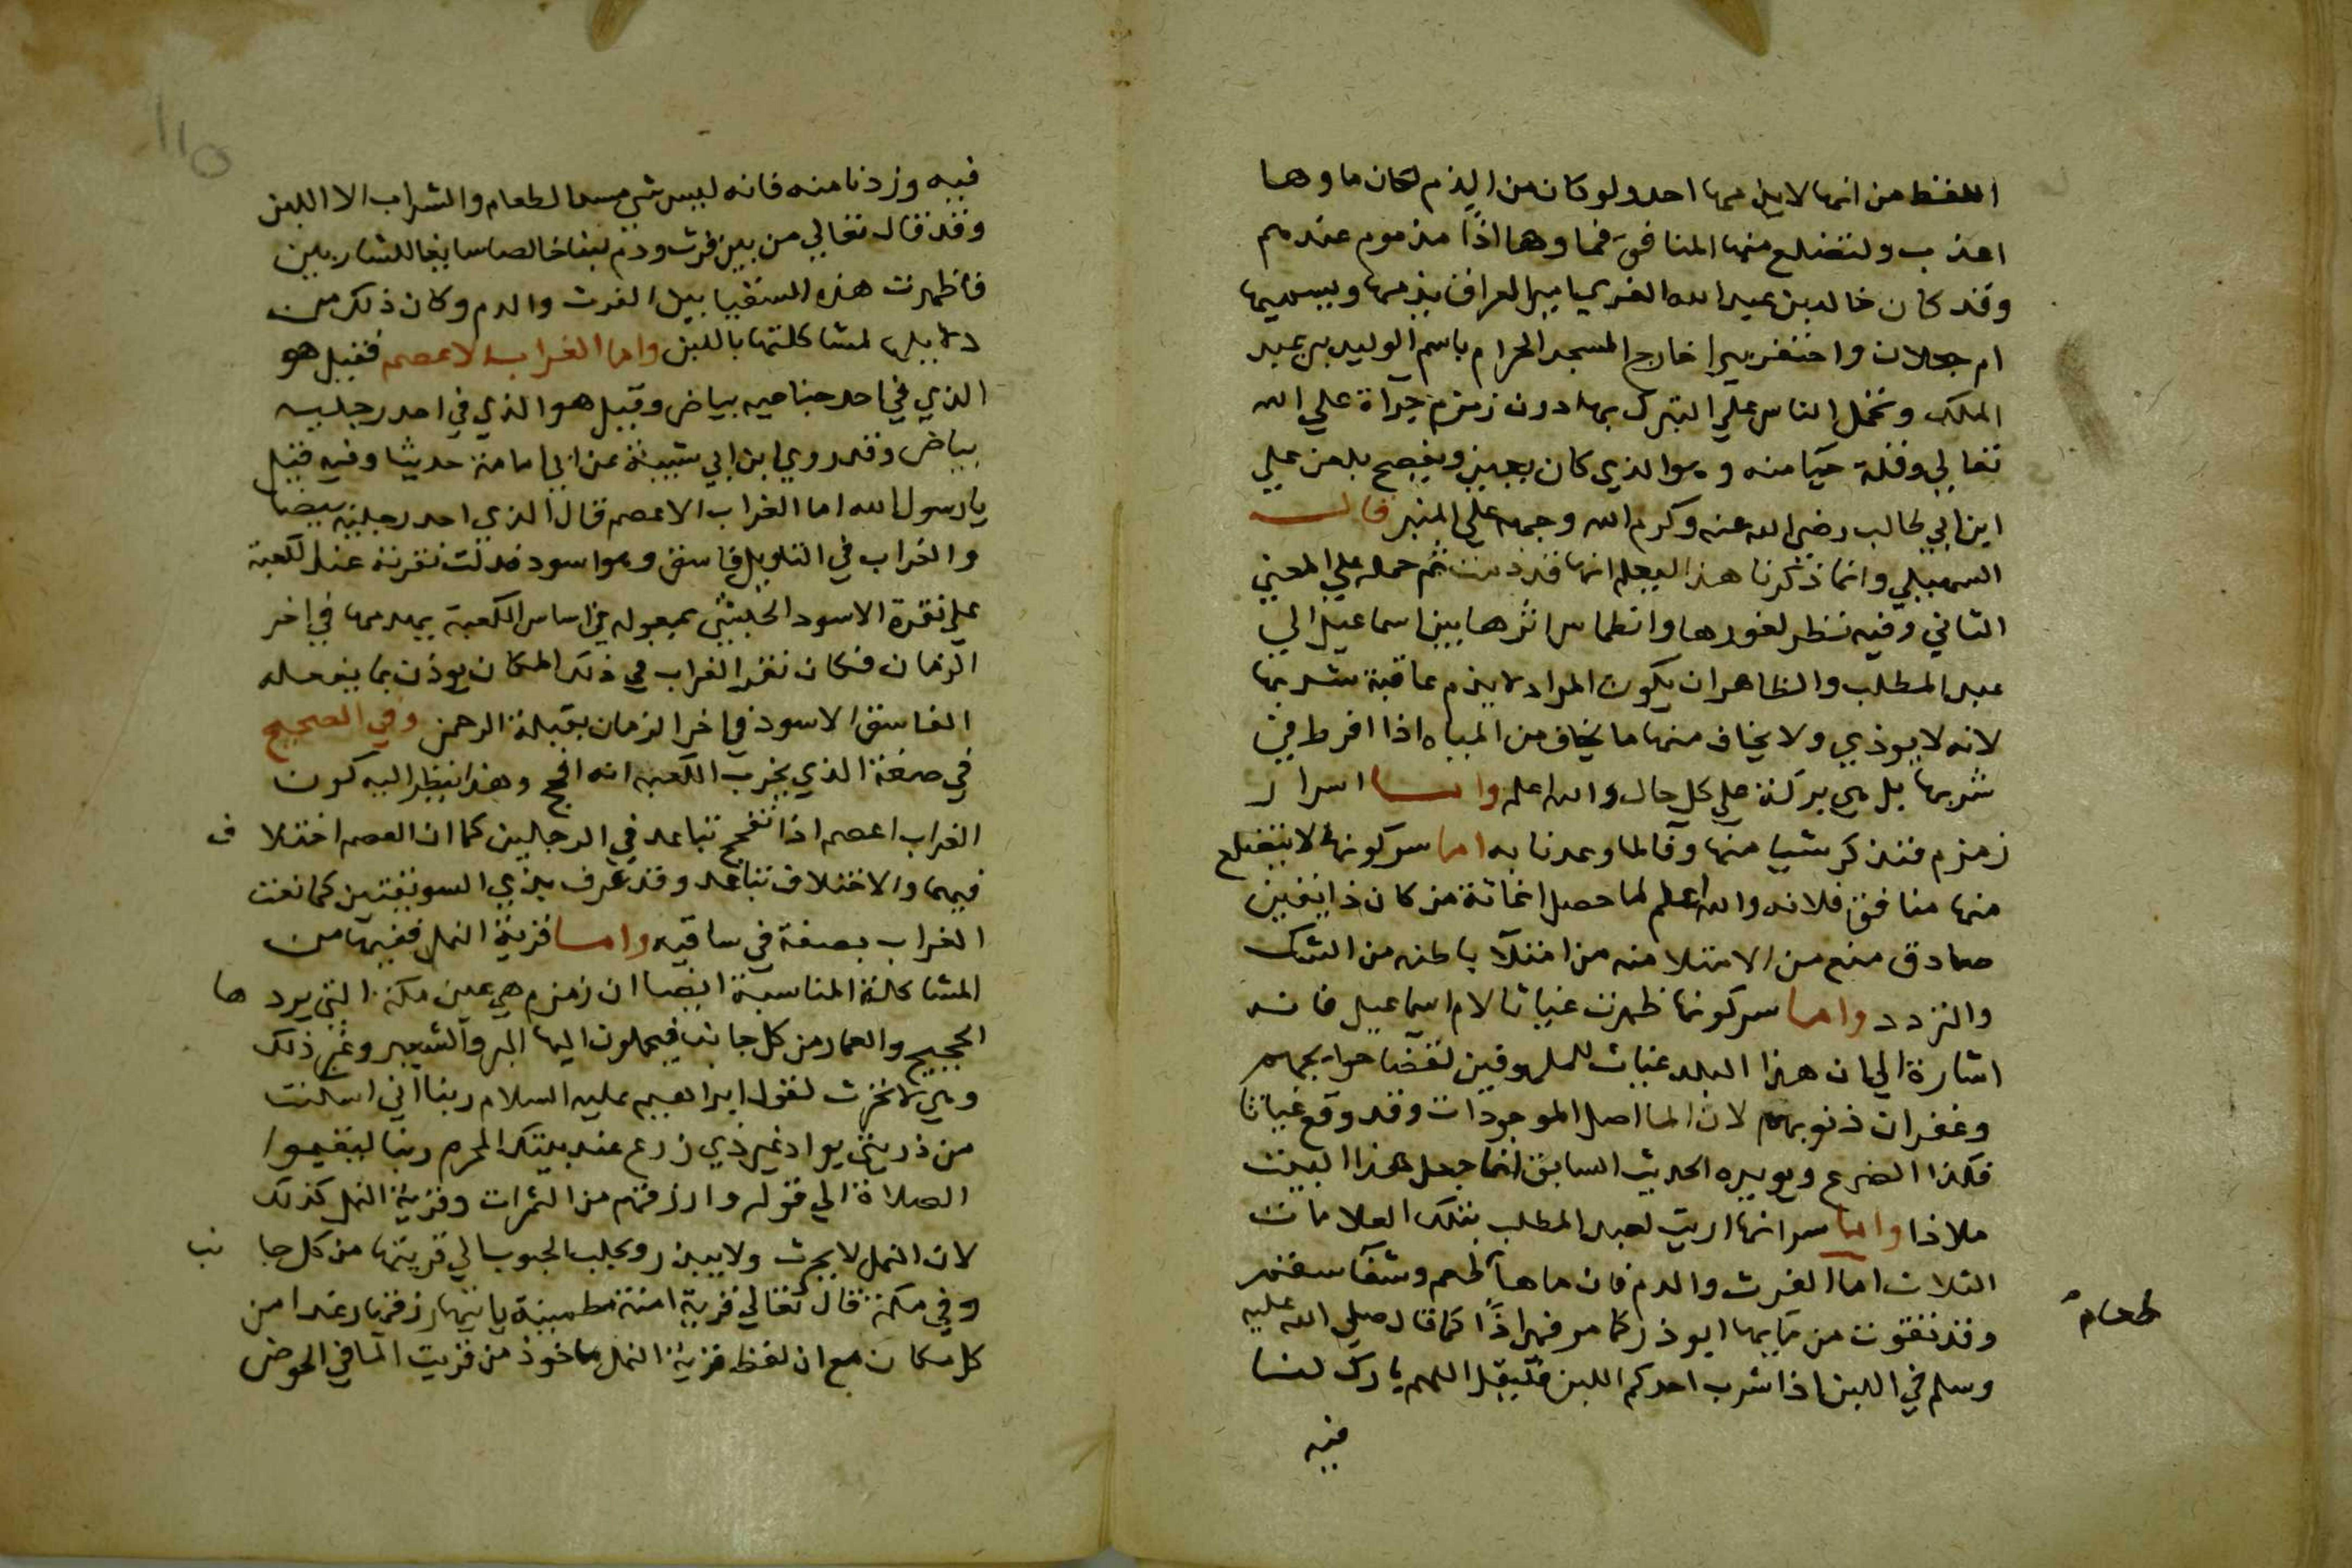 اللفظ من انها لا يذمها احد ولو كان من الذم لكان ماوها
اعذب ولتضلع منها المنافق فماوها اذًا مذموم عندهم
وقد كان خالد بن عبد الله القسري امير العراق يذمها ويسميها
ام جعلان واحتفر بيرا خارج المسجد الحرام باسم الوليد بن عبد
الملك وتحمل الناس علي التبرك بها دون زمزم جراة علي الله
تعالي وقلة حيا منه وهو الذي كان يعلن ويفصح بلعن علي
ابن ابي طالب رضي الله عنه وكرم الله وجهه علي المنبر قالـــ
السهيلي وانما ذكرنا هذا ليعلم انها قد ذمت ثم حمله علي المعني
الثاني وفيه نظر لغورها وانطماس اثرها بين اسماعيل الي
عبد المطلب والظاهر ان يكون المراد لا يذم عاقبة شربها
لانه لا يوذي ولا يخاف منها ما يخاف من المياه اذا افرط في
شربها بل هي بركة علي كل حال والله اعلم وامـــا اسرار
زمزم فنذكر شيا منها وفا لما وعدنا به اما سر كونها لا يتضلع
منها منافق فلانه والله اعلم لما حصل اغاثة من كان ذا يقين
صادق منع من الامتلا منه من امتلآ باطنه من الشك
والتردد وامـا سر كونها ظهرت غياثا لام اسماعيل فانـه
اشارة الي ان هذا البلد غياث للملهوفين لقضا حوايجهم
وغفران ذنوبهم لان الما اصل الموجودات وقد وقع غياثا
فكذا الضرع ويويده الحديث السابق انما جعل هذا البيت
ملاذا وامـا سر انها اريت لعبد المطلب بتلك العلامات
الثلاث اما الفرث والدم فان ماهآ طعام وشفآ سقم
وقد تقوت من مآيها ابو ذر كما مر فهي اذًا كما قال صلي الله عليه
وسلم في اللبن اذا شرب احدكم اللبن فليقل اللهم بارك لنـا
فيه
فيه وزدنا منه فانه ليس شي يسد الطعام والشراب الا اللبن
وقد قال تعالي من بين فرث ودم لبنا خالصا سايغا للشاربين
فاظهرت هذه السقيا بين الفرث والدم وكان ذلك من
دلايلها لمشاكلتها باللبن واما الغراب الاعصم فقيل هو
الذي في احد جناحيه بياض وقيل هو الذي في احد رجليه
بياض وقد روي ابن ابي شيبة عن ابي امامة حديثا وفيه قيل
يا رسول الله اما الغراب الاعصم قال الذي احد رجليه بيضا
والغراب في التاويل فاسق وهو اسود فدلت نقرته عند الكعبة
علي نقرة الاسود الحبيشي بمعوله في اساس الكعبة يهدمها في اخر
الزمان فكان نقر الغراب في ذلك المكان يوذن بما يفعله
الفاسق الاسود في اخر الزمان بقبلة الرحمن وفي الصحيح
في صفة الذي يخرب الكعبه انه افحج وهذا ينظر اليه كون
الغراب اعصم اذا تفحج تباعد في الرجلين كما ان العصم اختلا ف
فيهما والاختلاف تباعد وقد عرف بذي السويقتين كما نعت
الغراب بصفة في ساقيه وامـا قرية النمل ففيها من
المشاكلة المناسبة ايضا ان زمزم هي عين مكة التي يرد ها
الحجيج والعمار من كل جانب فيحملون اليها البر والشعير وغير ذلك
وهي لا تحرث لقول ابراهيم عليه السلام ربنا اني اسكنت
من ذريتي بواد غير ذي زرع عند بيتك المحرم ربنا ليقيموا
الصلاة الي قوله وارزقهم من الثمرات وقرية النمل كذلك
لان النمل لا يحرث ولا يبذر ويجلب الحبوب الي قريتها من كل جا نب
وفي مكة قال تعالي قرية امنة مطمينة ياتيها رزقها رغدا من
كل مكان مع ان لفظ قرية النمل ماخوذ من قريت المآ في الحوض